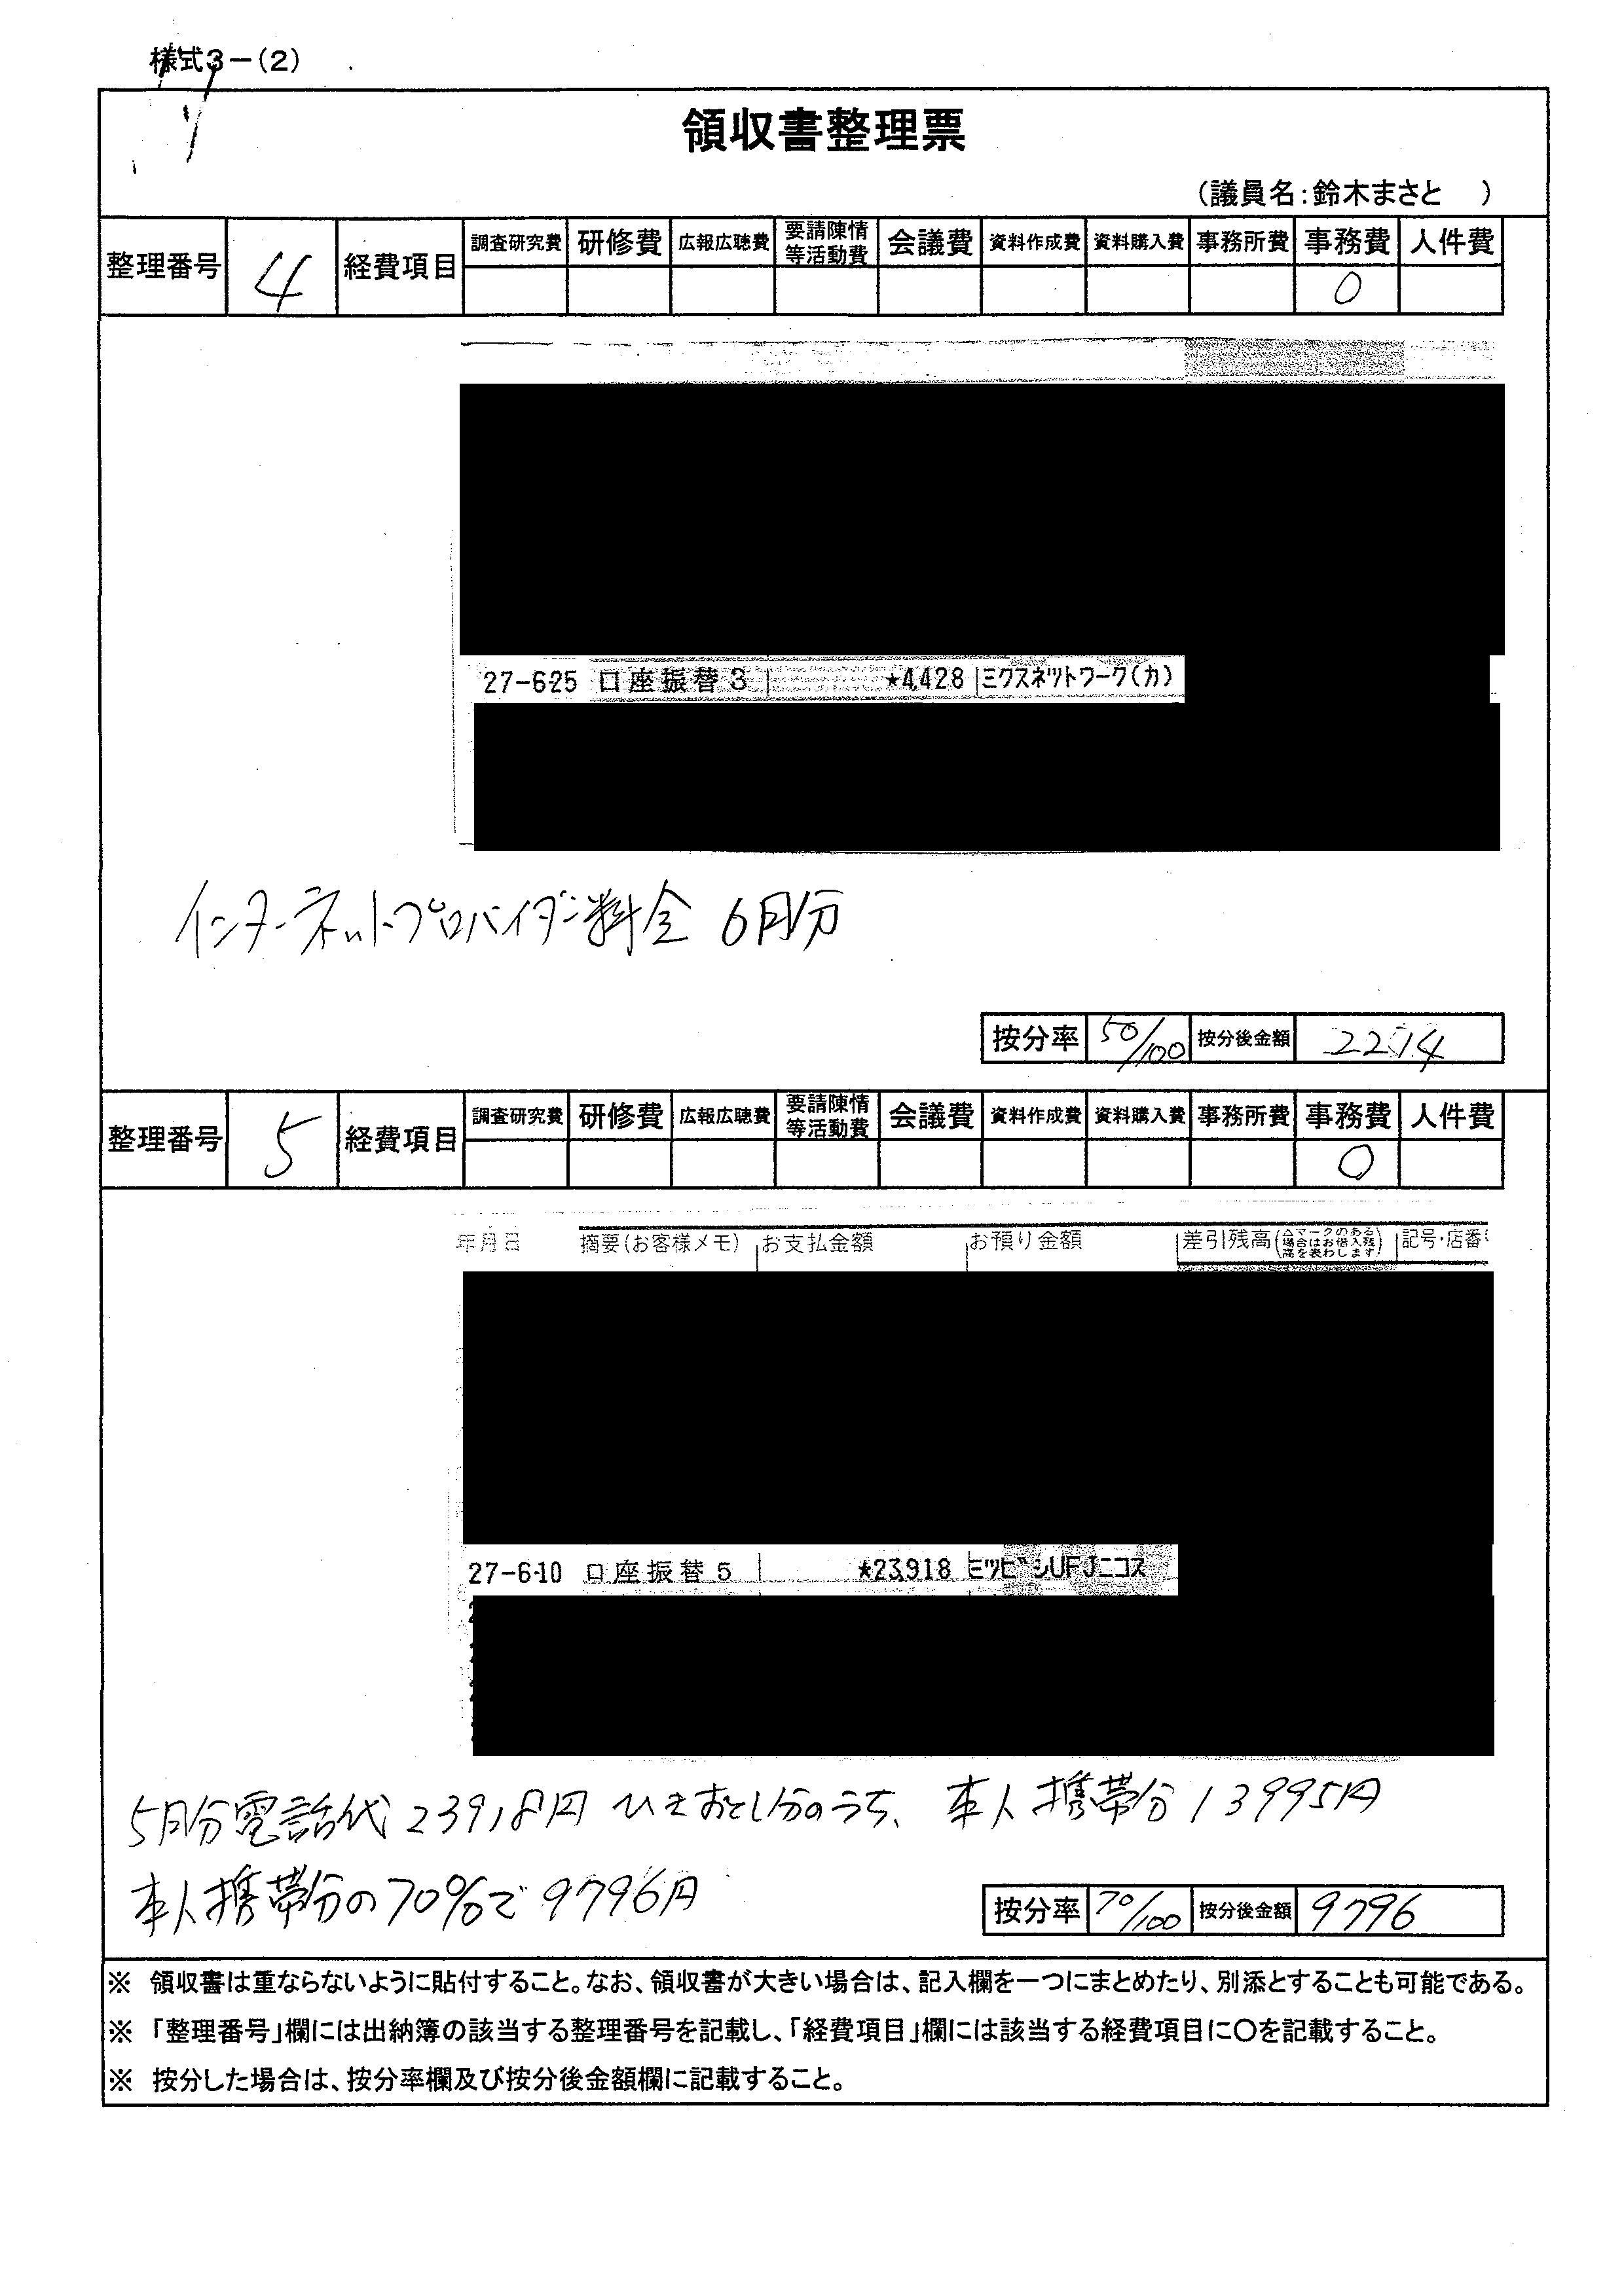 様式3-(2)
領収書整理票
(議員名:鈴木まさと )
整理番号 4 経費項目 調査研究費 研修費 広報広聴費 要請陳情等活動費 会議費 資料作成費 資料購入費 事務所費 事務費 人件費
○
27-6-25 口座振替3 ★4,428 ミクスネツトワーク(カ)
インターネットプロバイダー料金 6月分
按分率 50/100 按分後金額 2214
整理番号 5 経費項目 調査研究費 研修費 広報広聴費 要請陳情等活動費 会議費 資料作成費 資料購入費 事務所費 事務費 人件費
○
年月日 摘要(お客様メモ) お支払金額 お預り金額 差引残高 記号・店番
27-6-10 口座振替5 ★23,918 ミツビシUFJニコス
5月分電話代23918円ひきおとし分のうち、本人携帯分13995円
本人携帯分の70%で9796円
按分率 70/100 按分後金額 9796
※ 領収書は重ならないように貼付すること。なお、領収書が大きい場合は、記入欄を一つにまとめたり、別添とすることも可能である。
※ 「整理番号」欄には出納簿の該当する整理番号を記載し、「経費項目」欄には該当する経費項目に○を記載すること。
※ 按分した場合は、按分率欄及び按分後金額欄に記載すること。